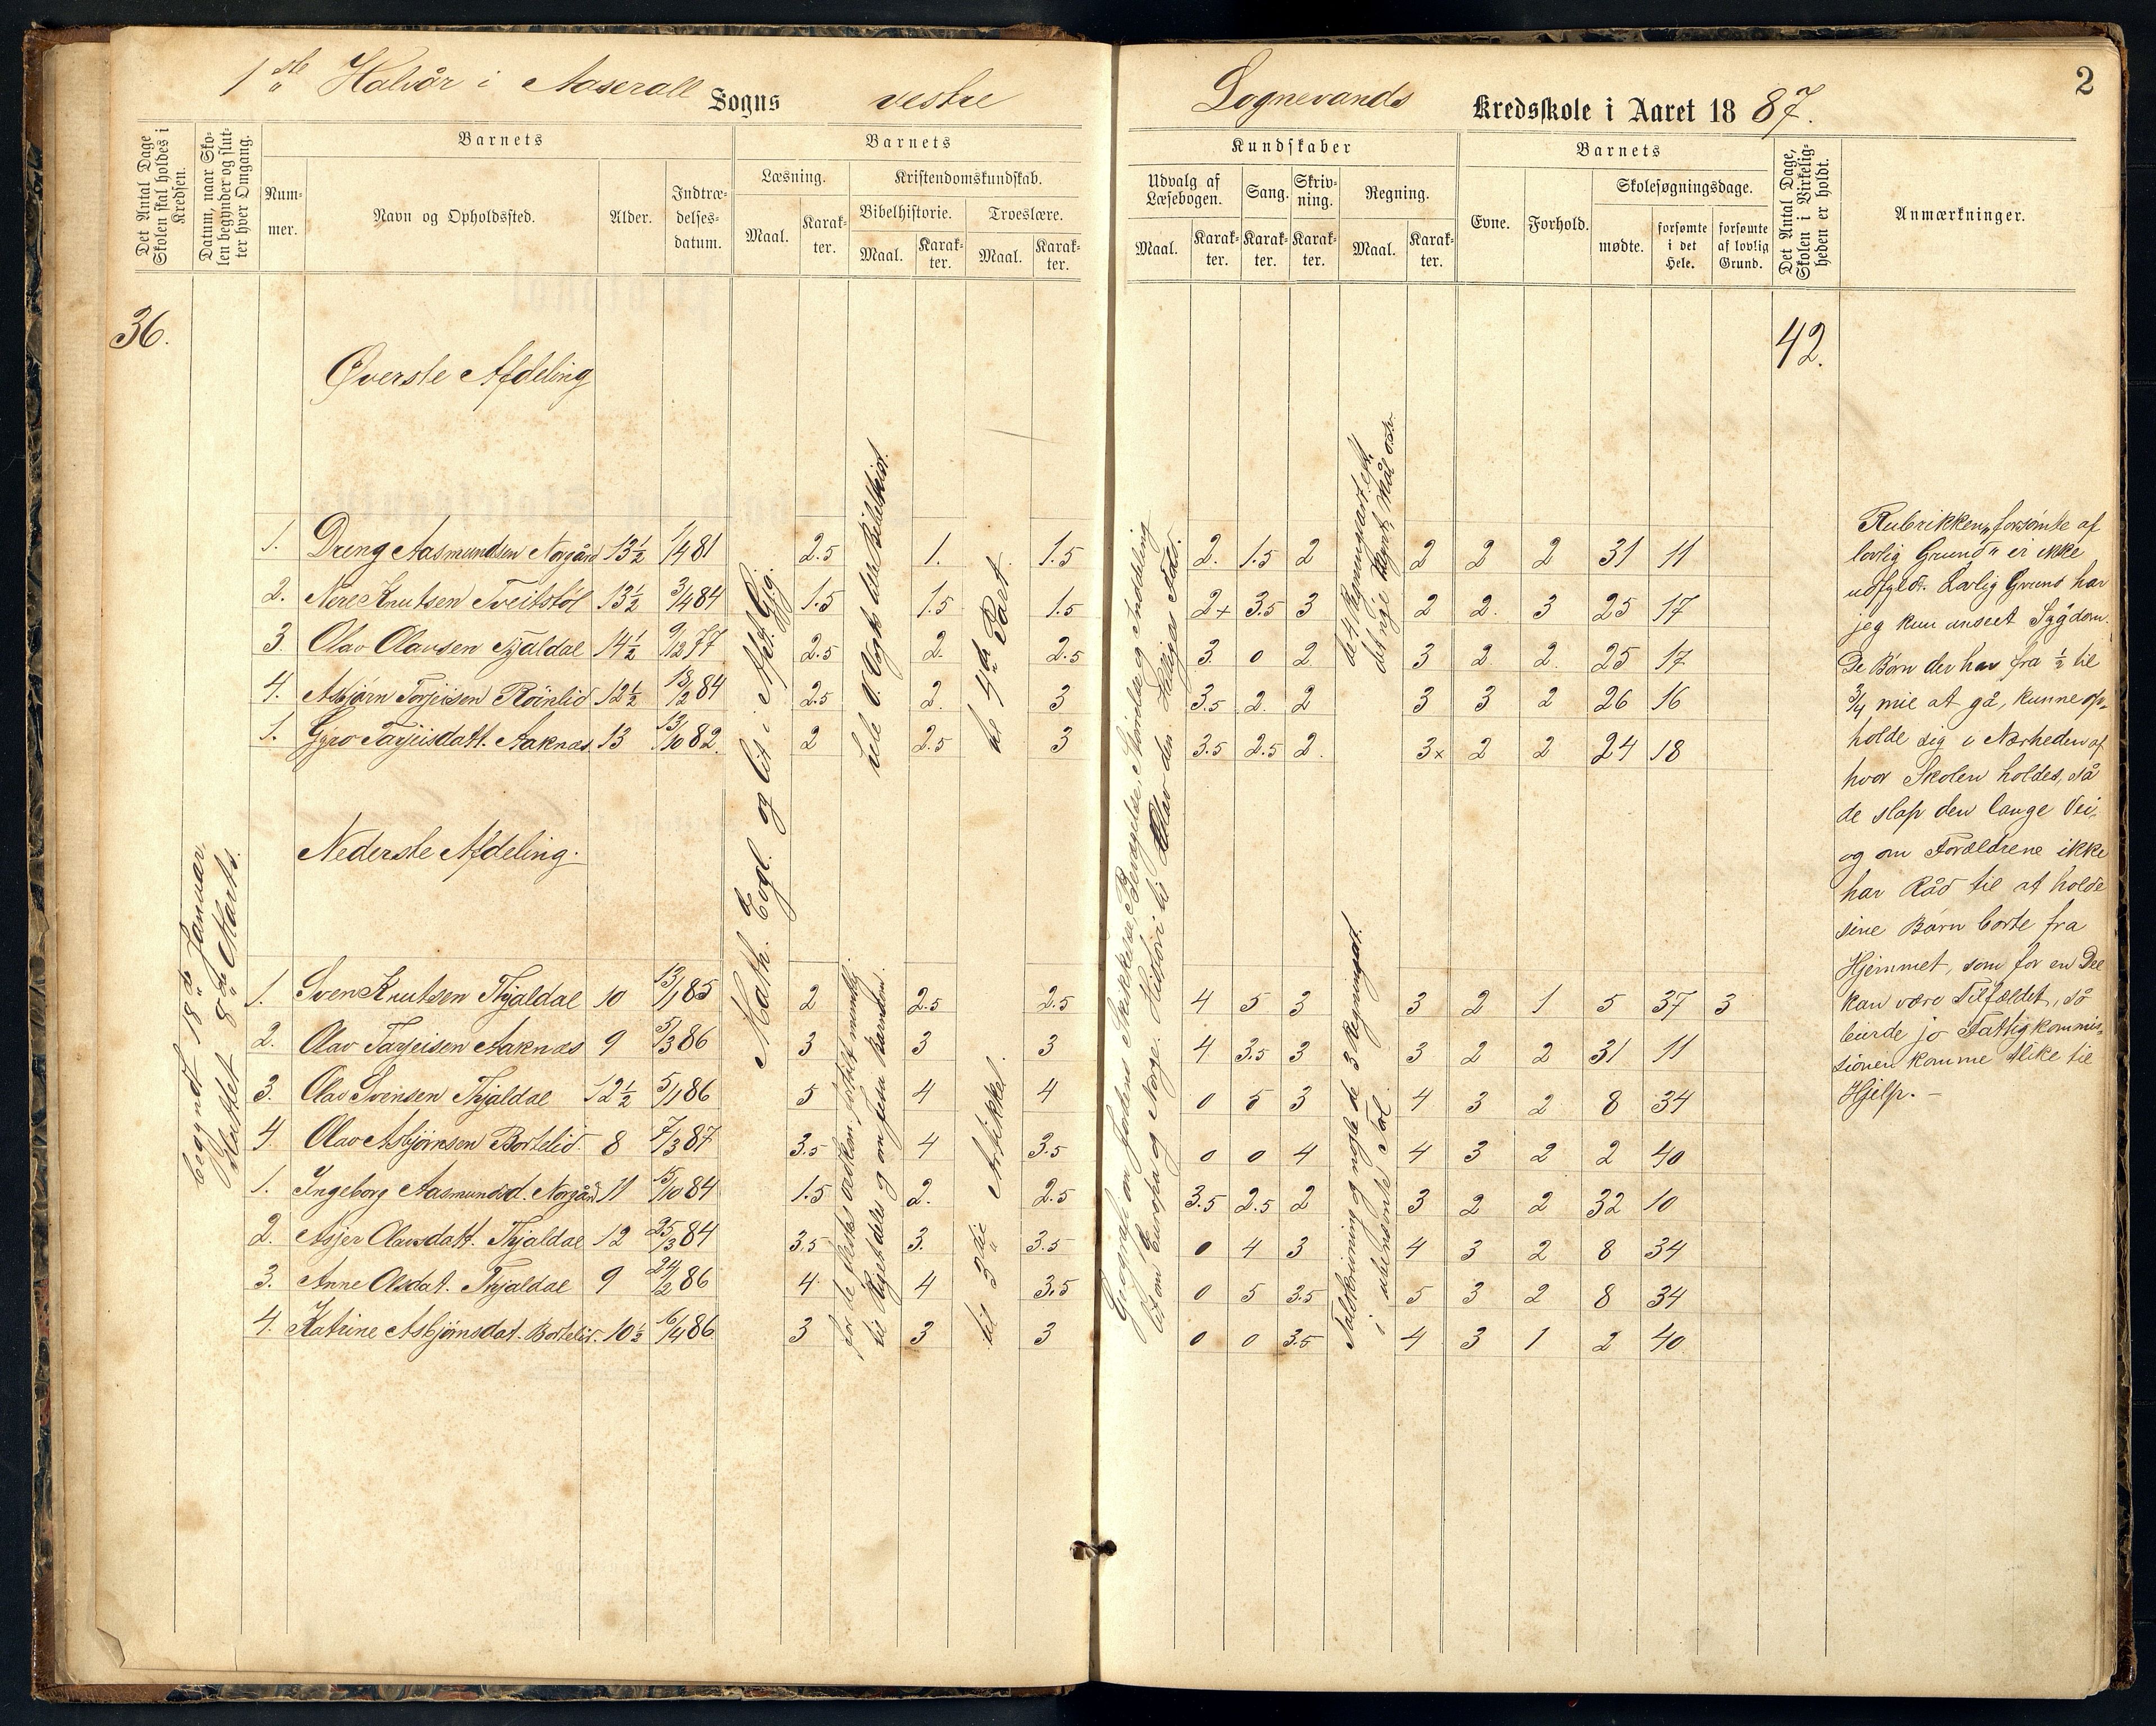 1ste Halvår i Aaseral Sogns vestre Lognevands Kredsskole i Aaret 1887.
2
Det Antal Dage Skolen skal holdes i Kredsen.
Datum, naar Skolen begynder og slutter hver Omgang.
Barnets
Nummer.
Navn og Opholdssted.
Alder.
Indtrædelsesdatum.
Barnets
Læsning.
Maal.
Karakter.
Kristendomskundskab.
Bibelhistorie.
Maal.
Karakter.
Troeslære.
Maal.
Karakter.
Kundskaber
Udvalg af Læsebogen.
Maal.
Karakter.
Sang.
Karakter.
Skrivning.
Karakter.
Regning.
Maal.
Karakter.
Barnets
Evne.
Forhold.
Skolesøgningsdage.
mødte.
forsømte i det Hele.
forsømte af lovlig Grund.
Det Antal Dage, Skolen i Virkeligheden er holdt.
Anmærkninger.
36.
42.
Øverste Afdeling
1. Dreng Aasmundsen Norgård 13½ 1/4 81 2.5 1. 1.5 2. 1.5 2 2 2 2 31 11
2. Nere Knutsen Tveitstöl 13½ 3/4 84 1.5 1.5 1.5 2+ 3.5 3 2 2. 3 25 17
3. Olav Olavsen Kyaldal 14½ 9/12 77 2.5 2. 2.5 3. 0 2 3 2 2. 25 17
4. Asbjørn Torjeisen Röinlid 12½ 13/2 84 2.5 2. 3 3.5 2. 2 3 3 2 26 16
1. Gyro Tarjeisdatt. Aaknas 13 13/10 82. 2 2.5 3 3.5 2.5 2. 3x 2 2 24 18
Nederste Afdeling.
1. Sven Knutsen Thjaldal 10 13/1 85 2 2.5 2.5 4 5 3 3 2 1 5 37 3
2. Olav Tarjeisen Aaknas 9 5/3 86 3 3 3 4 3.5 3 3 2 2 31 11
3. Olav Svinsen Thjaldal 12½ 5/1 86 5 4 4 0 5 3 4 3 2 8 34
4. Olav Asbjørnsen Bortelid. 8 7/3 87 3.5 4 3.5 0 0 4 4 3 2 2 40
1. Ingeborg Aasmundsd. Norgård 11 15/10 84 1.5 2. 2.5 3.5 2.5 2 3 2 2 32 10
2. Asjer Olavsdatt. Thjaldal 12 25/3 84 3.5 3. 3.5 0 4 3 4 3 2 8 34
3. Anne Olsdat. Thjaldal 9 24/2 86 4 4 3.5 0 5 3.5 5 3 2 8 34
4. Katrine Asbjørnsdat. Bortelid. 10½ 16/4 86 3 3 3 0 0 3.5 4 3 1 2 40.
begyndt 18de Januar.
Sluttet 8de Marts.
Math. Evgl. og lit i Apt. Gjg.
hele V. Vogts lille Bibelhist.
for de fleste vedkom. fortalt mundtlig
til Rigets deles og om Jesu barndom.
al 4de Part
til 3die Artikkel.
Geografi om Jordens Skikkelse, Bevægelse, Størrelse og Inddeling
lit om Europa og Norge. Historie til Olav den Helliges Fald.
de 4 Regningsart. eft.
det nye Mynt, Mål osv.
Talskrivning og nogle de 3 Regningsart.
i ubenevnte Tal
Rubrikken „forsømte af
lovlig Grund" er ikke
udfyldt. Lovlig Grund har
jeg kun anseet Sygdom.
De Børn der har fra ½ til
¾ mil at gå, kunne op-
holde sig i Nærheden af
hvor Skolen holdes, så
de slap den lange Vei,
og om Forældrene ikke
har Råd til at holde
sine Børn borte fra
Hjemmet, som for en Del
kan være Tilfældet, så
burde jo Fattigkommis-
sionen komme slike til
Hjelp. —